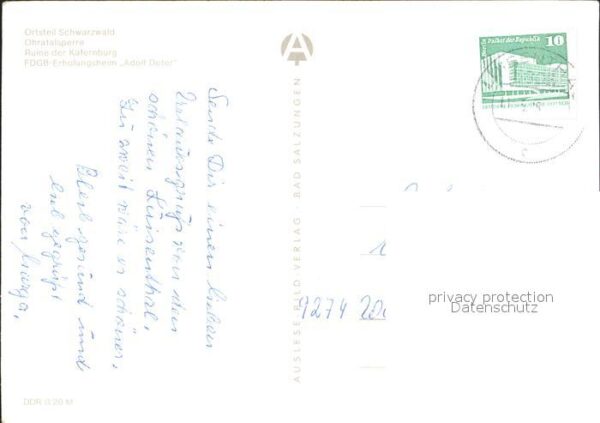 Ortsteil Schwarzwald
Ohratalsperre
Ruine der Käfernburg
FDGB-Erholungsheim „Adolf Deter"
Sende Dir einen lieben
Urlaubsgruß von dem
schönen Luisenthal.
Zu zweit wäre es schöner.
Bleib gesund und
lieb gegrüßt
von
AUSLESE BILD VERLAG · BAD SALZUNGEN
DDR 0,20 M
Berlin, Palast der Republik 10
9274
privacy protection
Datenschutz